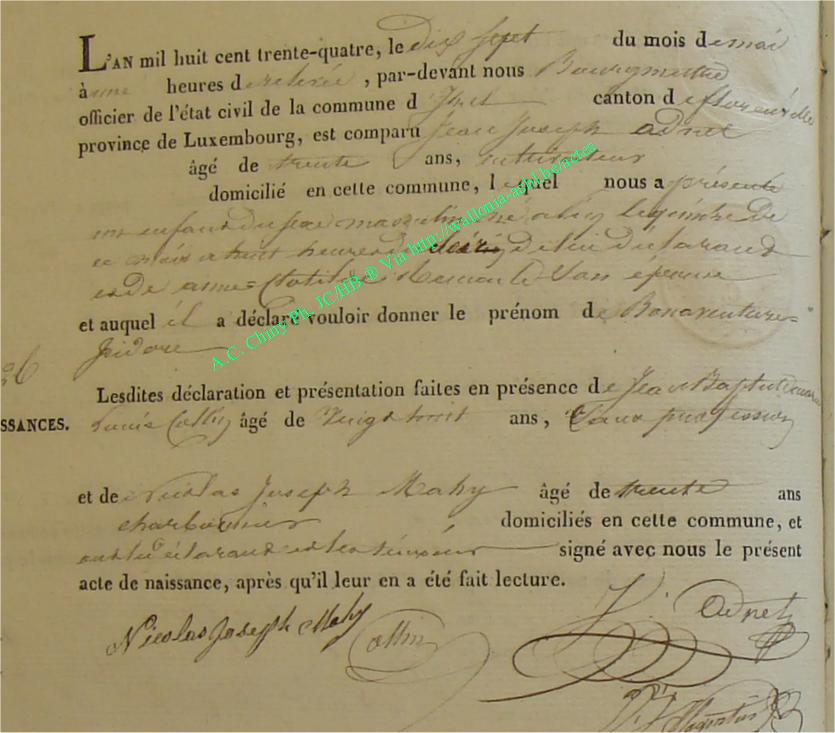 L'AN mil huit cent trente-quatre, le dix sept du mois de mai
à une heures de relevée, par-devant nous Bourgmestre
officier de l'état civil de la commune d'Izel canton de florenville
province de Luxembourg, est comparu Jean Joseph Adnet
âgé de trente ans, cultivateur
domicilié en cette commune, lequel nous a présenté
un enfant du sexe masculin né a Izel le quinze de
ce mois a huit heures du soir, de lui declarant
et de anne Clotilde son épouse
et auquel il a déclaré vouloir donner le prénom de Bonaventure
Isidore
26
Lesdites déclaration et présentation faites en présence de Jean Baptiste
SSANCES. Louis Collin âgé de vingt huit ans, sans profession
et de Nicolas Joseph Mahy âgé de trente ans
charbonnier domiciliés en cette commune, et
ont le déclarant et les témoins signé avec nous le présent
acte de naissance, après qu'il leur en a été fait lecture.
Nicolas Joseph Mahy Collin J. Adnet
A.C. Chiny Ph. JC/HB ® Via http://wallonia-asbl.be/actes